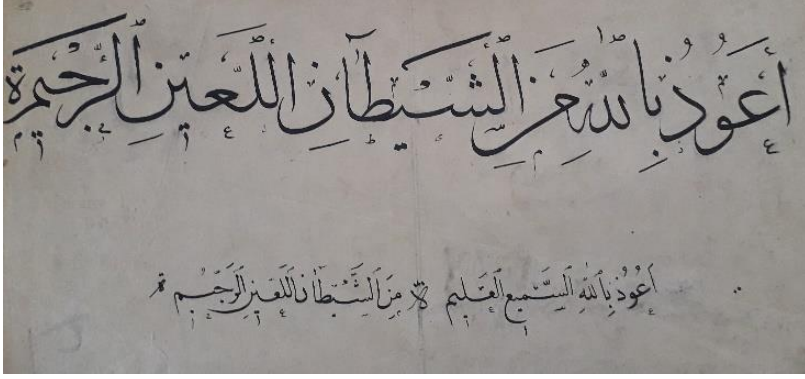 أَعُوذُ بِاللهِ مِنَ الشَّيْطَانِ اللَّعِينِ الرَّجِيمِ
أَعُوذُ بِاللهِ السَّمِيعِ الْعَلِيمِ مِنَ الشَّيْطَانِ اللَّعِينِ الرَّجِيمِ